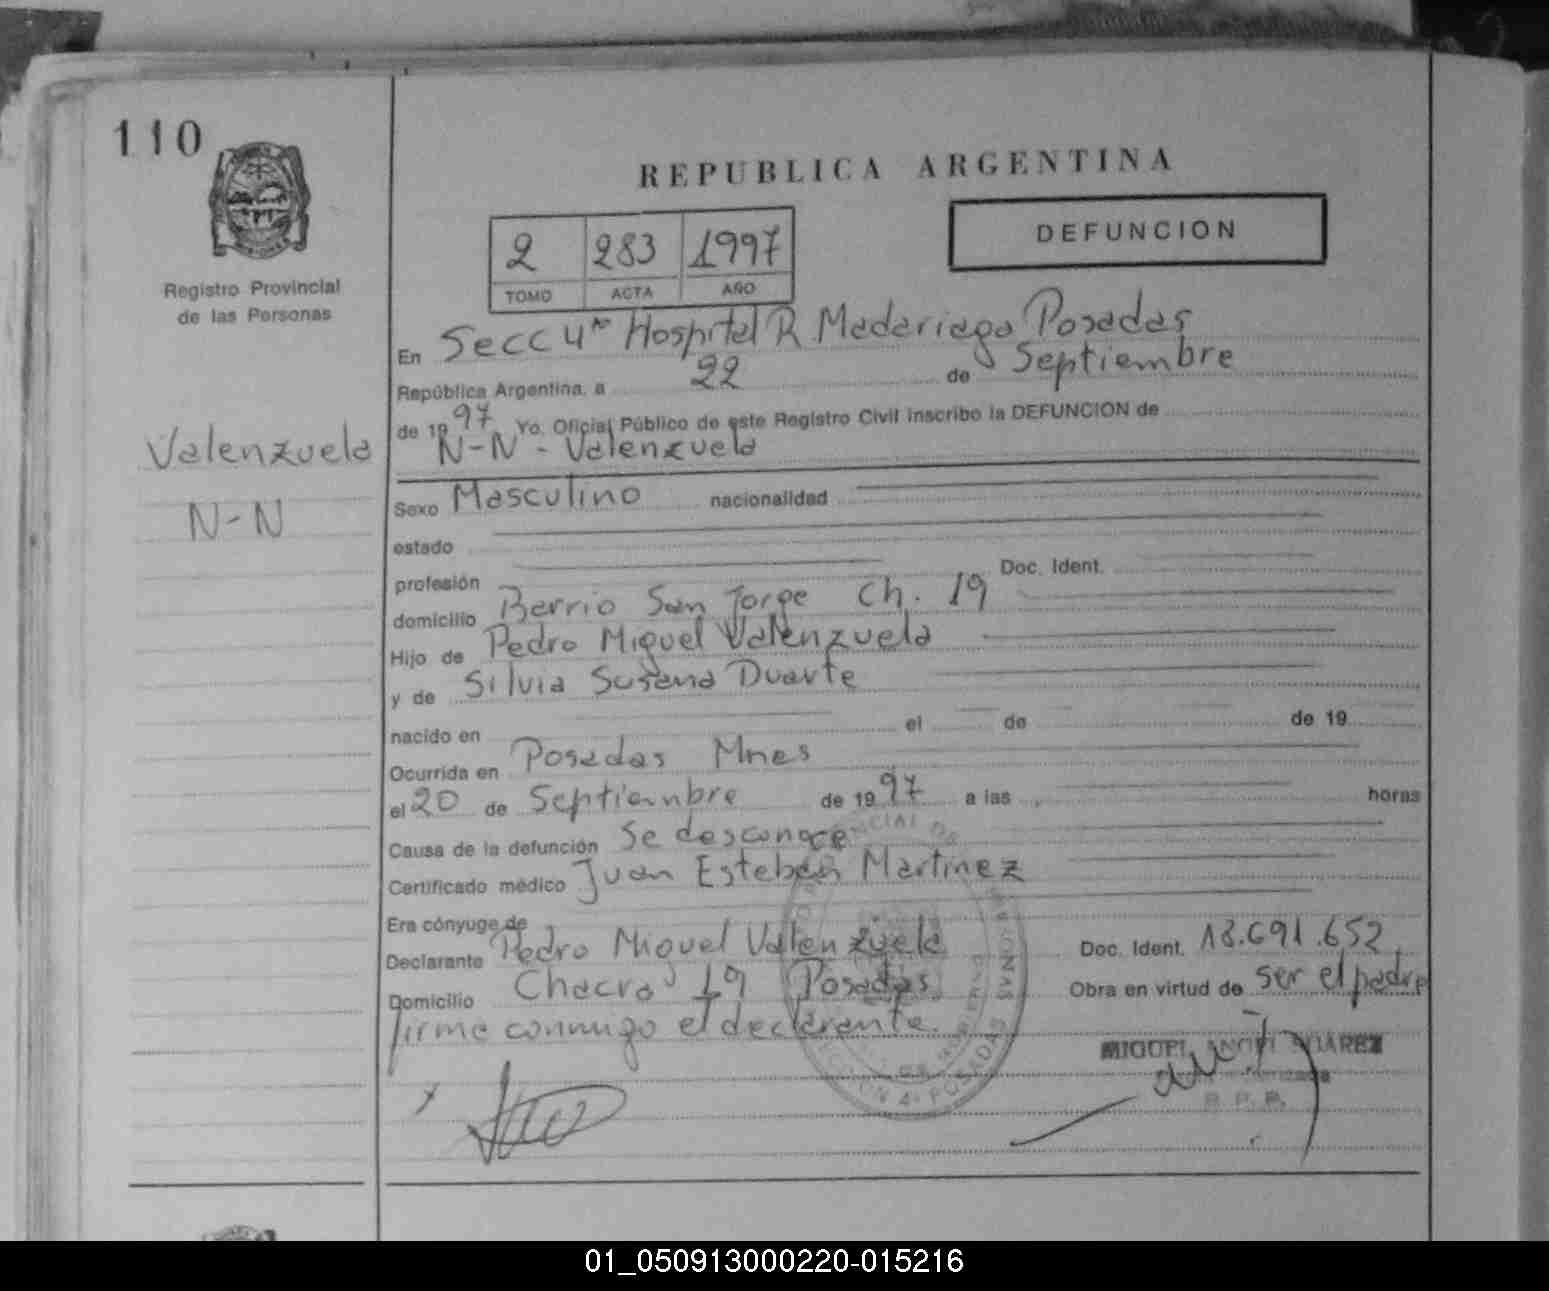 110
REPUBLICA ARGENTINA
2 283 1997
TOMO ACTA AÑO
DEFUNCION
Registro Provincial
de las Personas
En Secc 4ta Hospital R. Madariaga Posadas
República Argentina, a 22 de Septiembre
de 1997 Yo, Oficial Público de este Registro Civil inscribo la DEFUNCION de
N-N - Valenzuela
Valenzuela
N-N
Sexo Masculino nacionalidad
estado
profesión Doc. Ident.
domicilio Barrio San Jorge Ch. 19
Hijo de Pedro Miguel Valenzuela
y de Silvia Susana Duarte
nacido en el de de 19
Ocurrida en Posadas Mnes
el 20 de Septiembre de 1997 a las horas
Causa de la defunción Se desconoce
Certificado médico Juan Esteban Martinez
Era cónyuge de
Declarante Pedro Miguel Valenzuela Doc. Ident. 18.691.652
Domicilio Chacra 19 Posadas Obra en virtud de ser el padre
firma conmigo el declarante.
MIGUEL SUAREZ
01_050913000220-015216